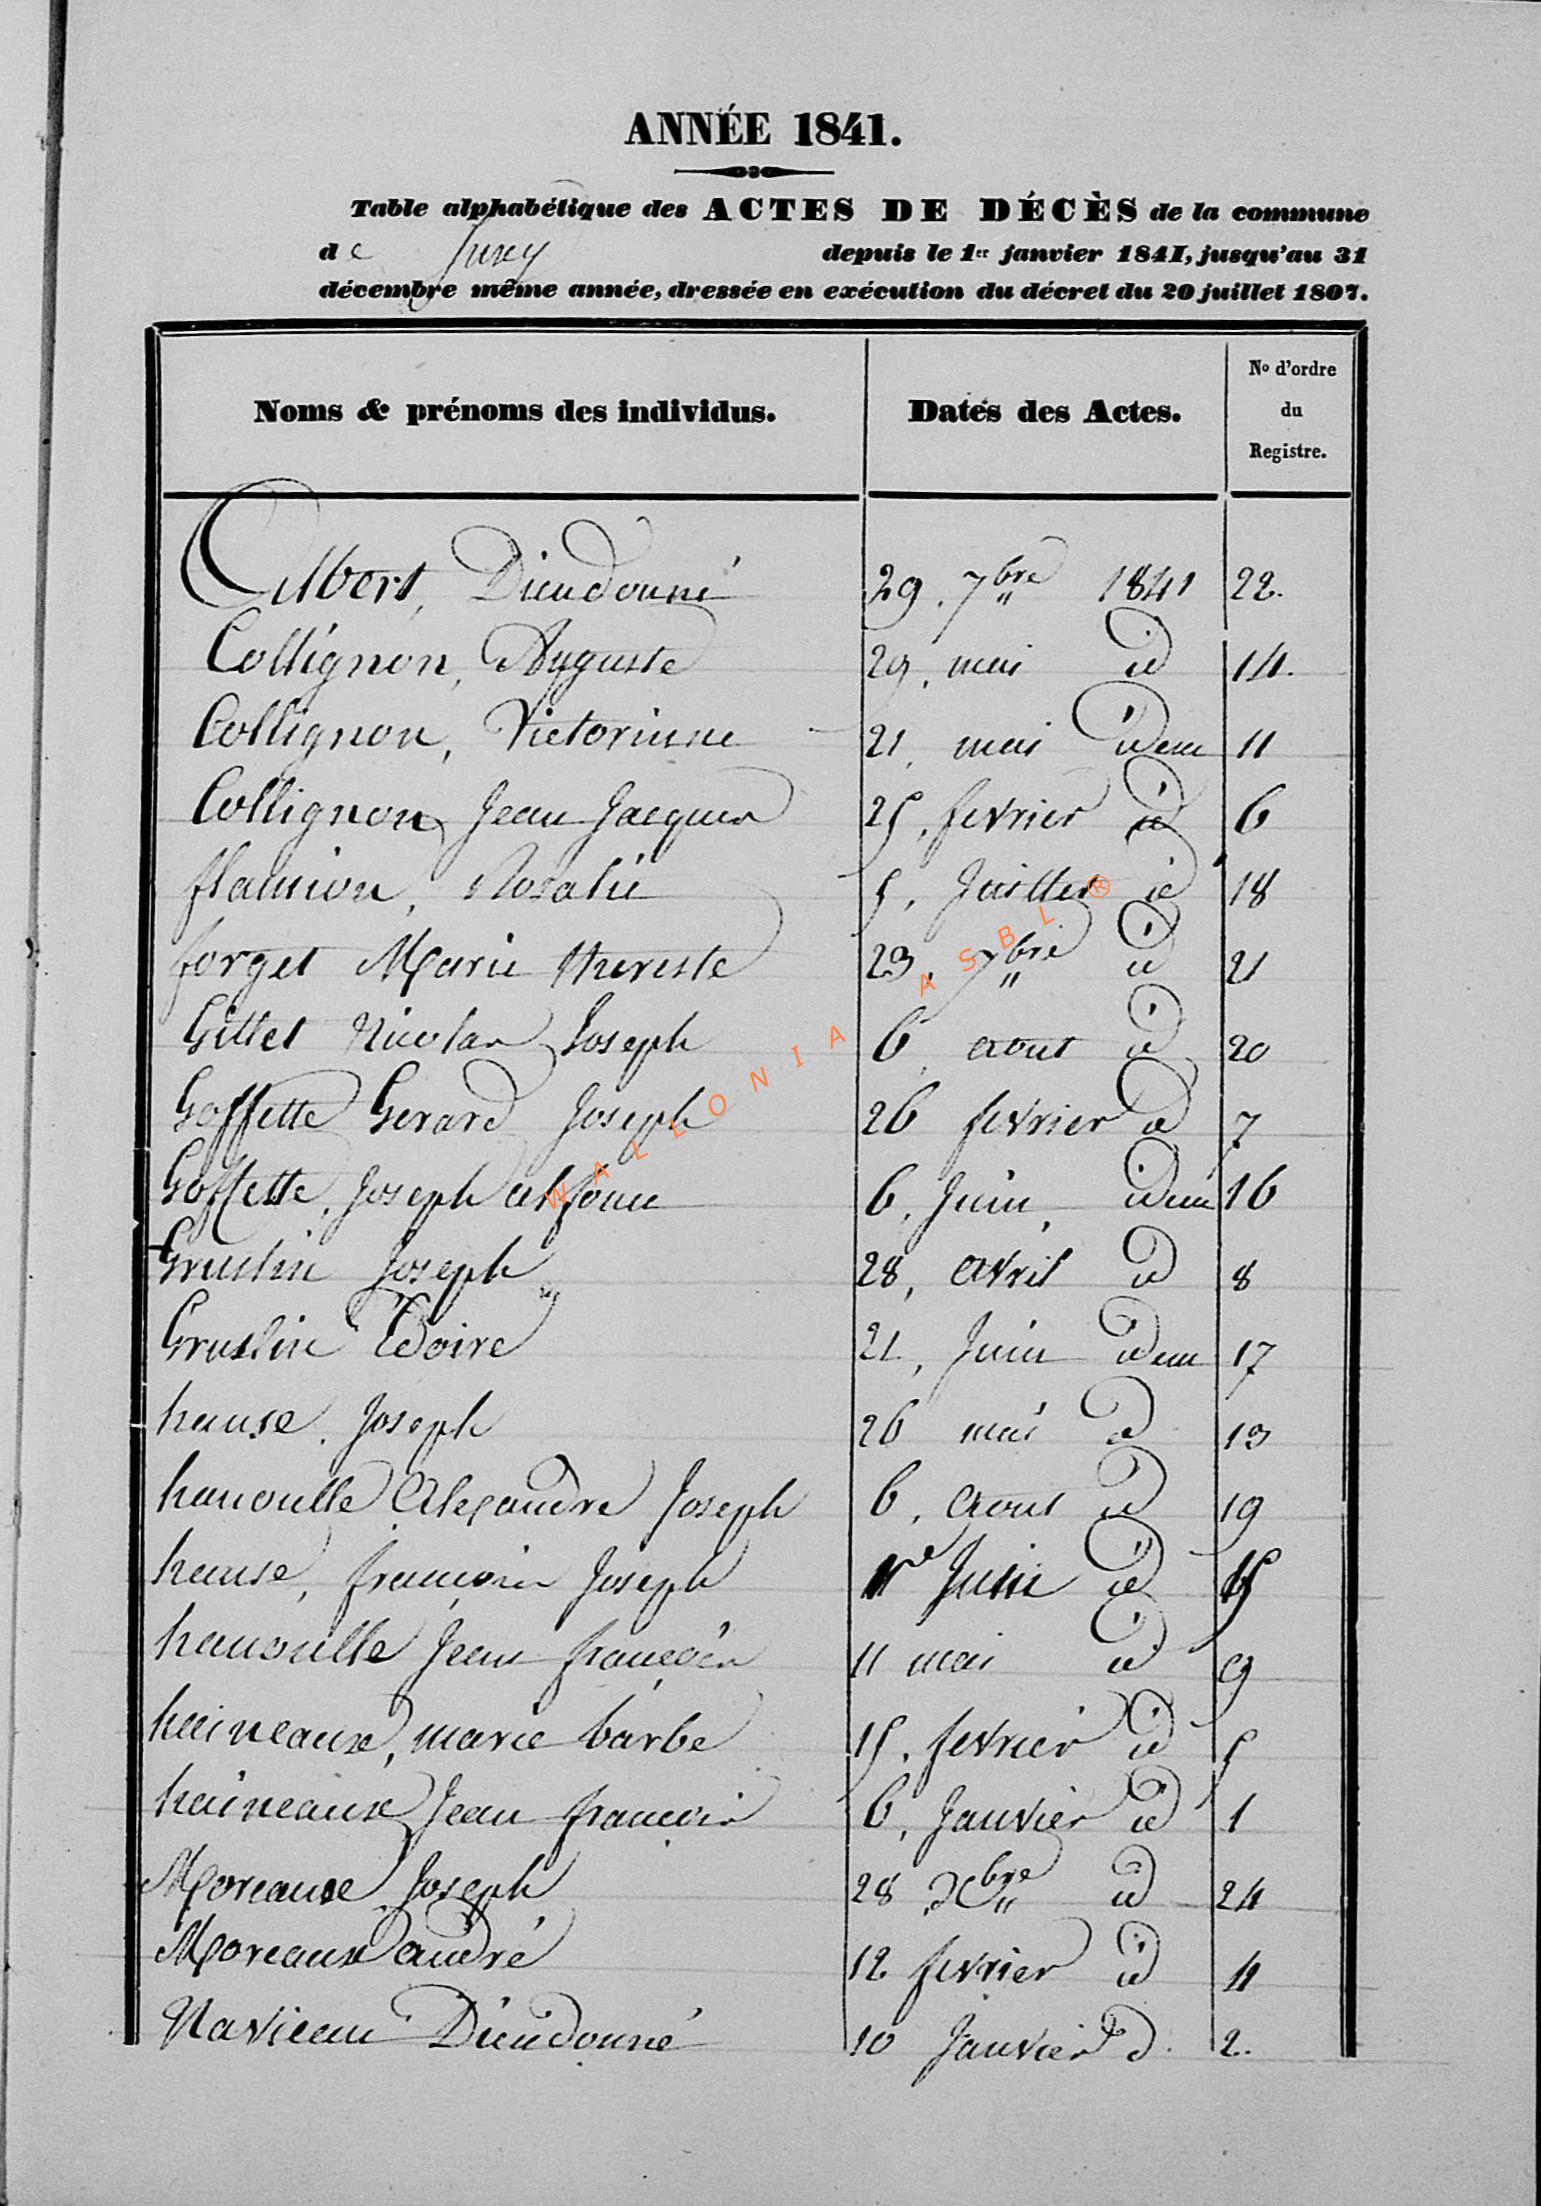 ANNÉE 1841.
Table alphabétique des ACTES DE DÉCÈS de la commune
de Juzey depuis le 1er janvier 1841, jusqu'au 31
décembre même année, dressée en exécution du décret du 20 juillet 1807.
Noms & prénoms des individus. Dates des Actes. No d'ordre du Registre.
Albert, Dieudonné 29. 7bre 1841 22.
Collignon, Auguste 29, mai id 14.
Collignon, Victorinne 21, mai idem 11
Collignon Jean Jacques 25, fevrier id 6
flamion, Rosalie 5, Juillet id 18
forget Marie therese 23, 7bre id 21
Gillet Nicolas Joseph 6, aout id 20
Goffette Gerard Joseph 26 fevrier id 7
Goffette, Joseph alfonse 6, Juin, idem 16
Gruslin Joseph 28, avril id 8
Gruslin Edoire 21, Juin idem 17
hanse, Joseph 26 mai id 13
hanoulle Alexandre Joseph 6, Aout id 19
hanse, françois Joseph 1re Juin id 15
hanoulle Jean françois 11 mai id 9
haineaux, marie barbe 15, fevrier id 5
haineaux Jean francois 6, Janvier id 1
Moreaux Joseph 28, Xbre id 24
Moreaux andré 12 fevrier id 4
Naviceau Dieudonné 10 Janvier id. 2.
WALLONIA ASBL ®